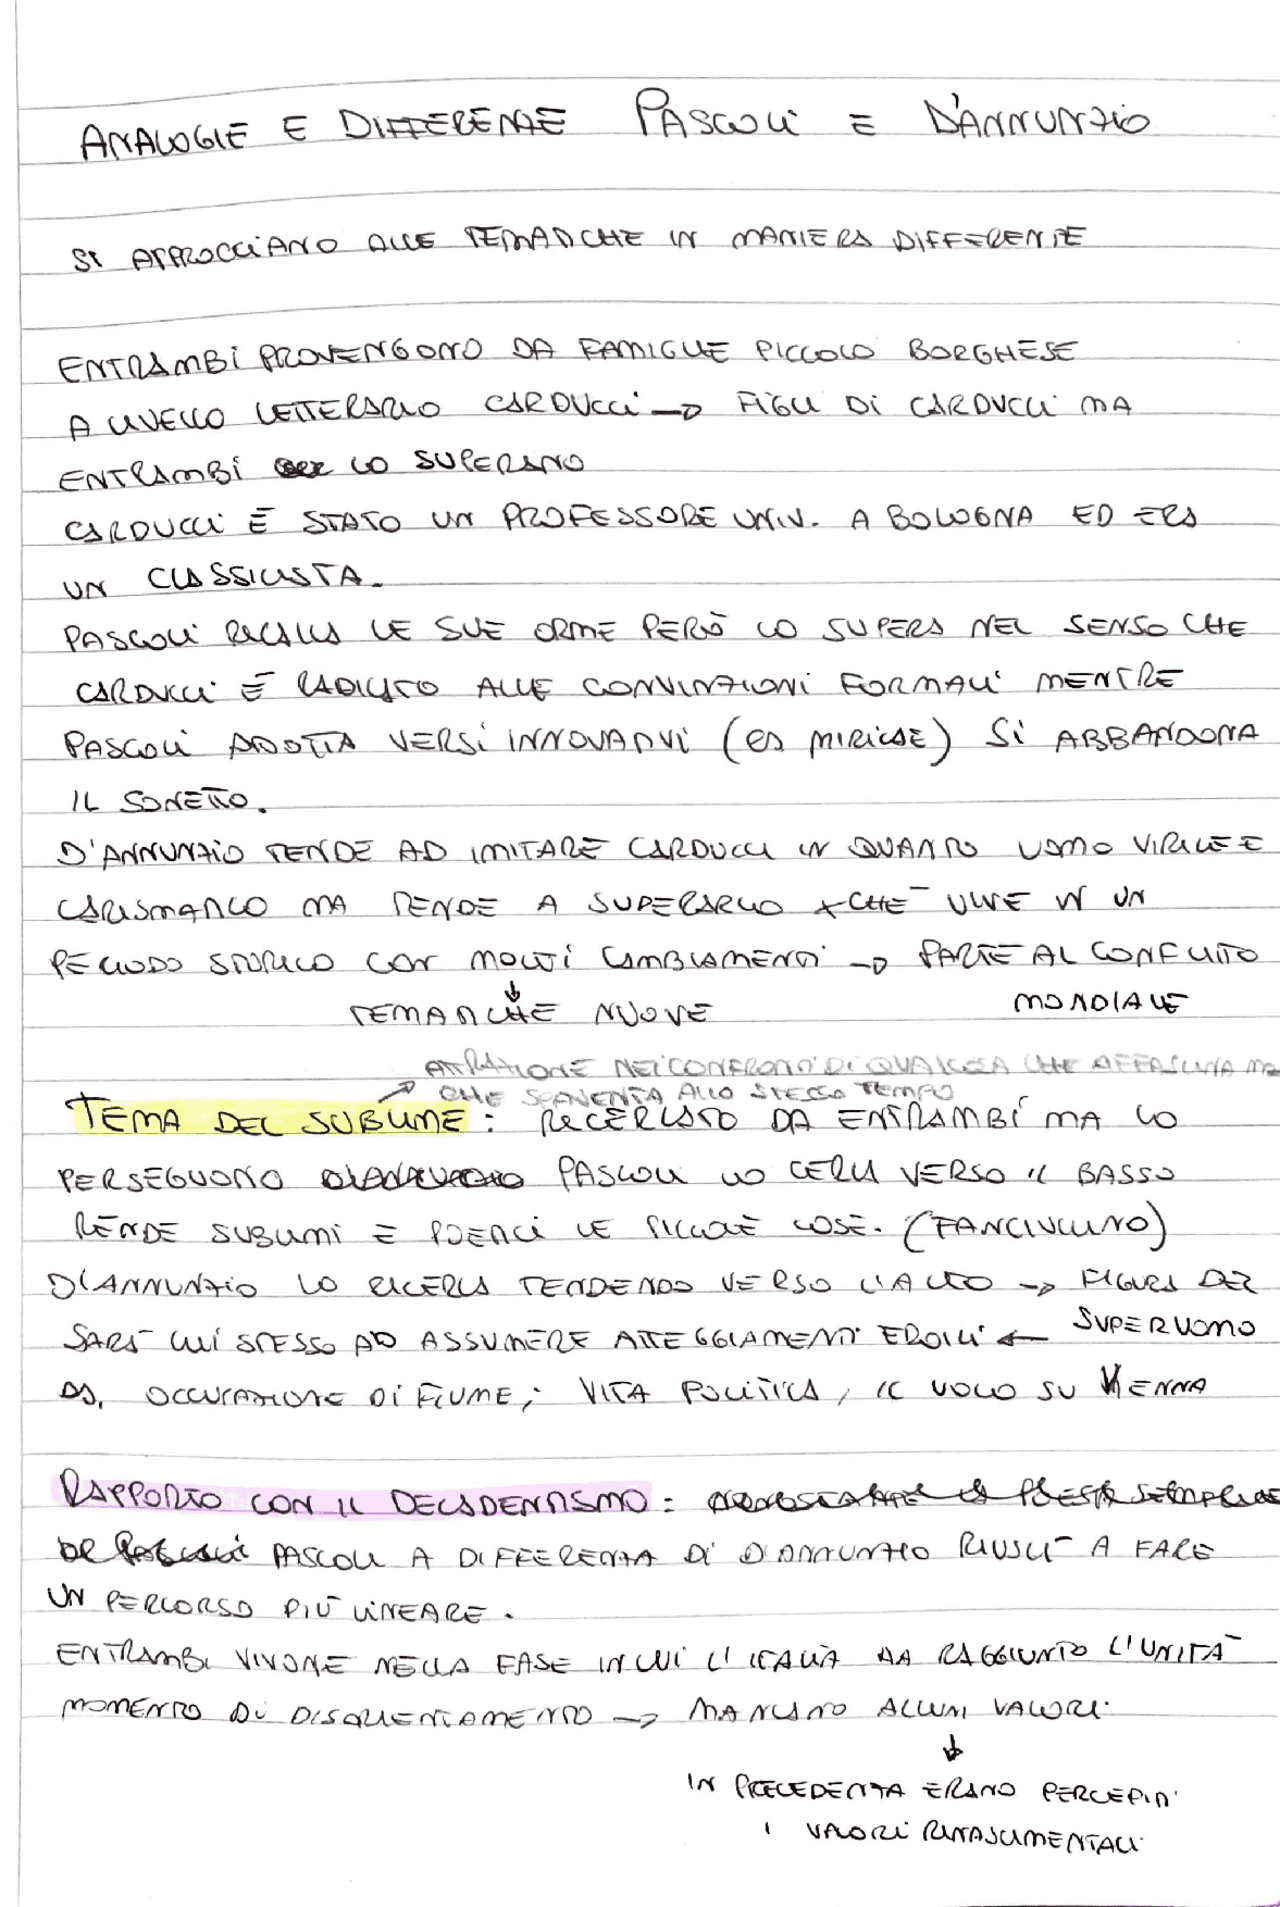 ANALOGIE E DIFFERENZE PASCOLI E D'ANNUNZIO
SI APPROCCIANO ALLE TEMATICHE IN MANIERA DIFFERENTE
ENTRAMBI PROVENGONO DA FAMIGLIE PICCOLO BORGHESE
A LIVELLO LETTERARIO CARDUCCI → FIGLI DI CARDUCCI MA
ENTRAMBI LO SUPERANO
CARDUCCI È STATO UN PROFESSORE UNIV. A BOLOGNA ED ERA
UN CLASSICISTA.
PASCOLI RICALCA LE SUE ORME PERÒ LO SUPERA NEL SENSO CHE
CARDUCCI È RADICATO ALLE CONVINZIONI FORMALI MENTRE
PASCOLI ADOTTA VERSI INNOVATIVI (ES MIRICAE) SI ABBANDONA
IL SONETTO.
D'ANNUNZIO TENDE AD IMITARE CARDUCCI IN QUANTO UOMO VIRILE E
CARISMATICO MA TENDE A SUPERARLO XCHÉ VIVE IN UN
PERIODO STORICO CON MOLTI CAMBIAMENTI → PARTE AL CONFLITO
↓
TEMATICHE NUOVE MONDIALE
ATTRAZIONE NEI CONFRONTI DI QUALCOSA CHE AFFASCINA MA
↗ CHE SPAVENTA ALLO STESSO TEMPO
TEMA DEL SUBLIME: RICERCATO DA ENTRAMBI MA LO
PERSEGUONO PASCOLI LO CERCA VERSO IL BASSO
RENDE SUBLIMI E POETICI LE PICCOLE COSE. (FANCIULLINO)
D'ANNUNZIO LO RICERCA TENDENDO VERSO L'ALTO → FIGURA DEL
SARÀ LUI STESSO AD ASSUMERE ATTEGGIAMENTI EROICI ← SUPERUOMO
ES. OCCUPAZIONE DI FIUME, VITA POLITICA, IL VOLO SU VIENNA
RAPPORTO CON IL DECADENTISMO:
PASCOLI A DIFFERENZA DI D'ANNUNZIO RIUSCÌ A FARE
UN PERCORSO PIÙ LINEARE.
ENTRAMBI VIVONE NELLA FASE IN CUI L'ITALIA HA RAGGIUNTO L'UNITÀ
MOMENTO DI DISORIENTAMENTO → MANCANO ALCUNI VALORI
↓
IN PRECEDENZA ERANO PERCEPITI
I VALORI RINASCIMENTALI